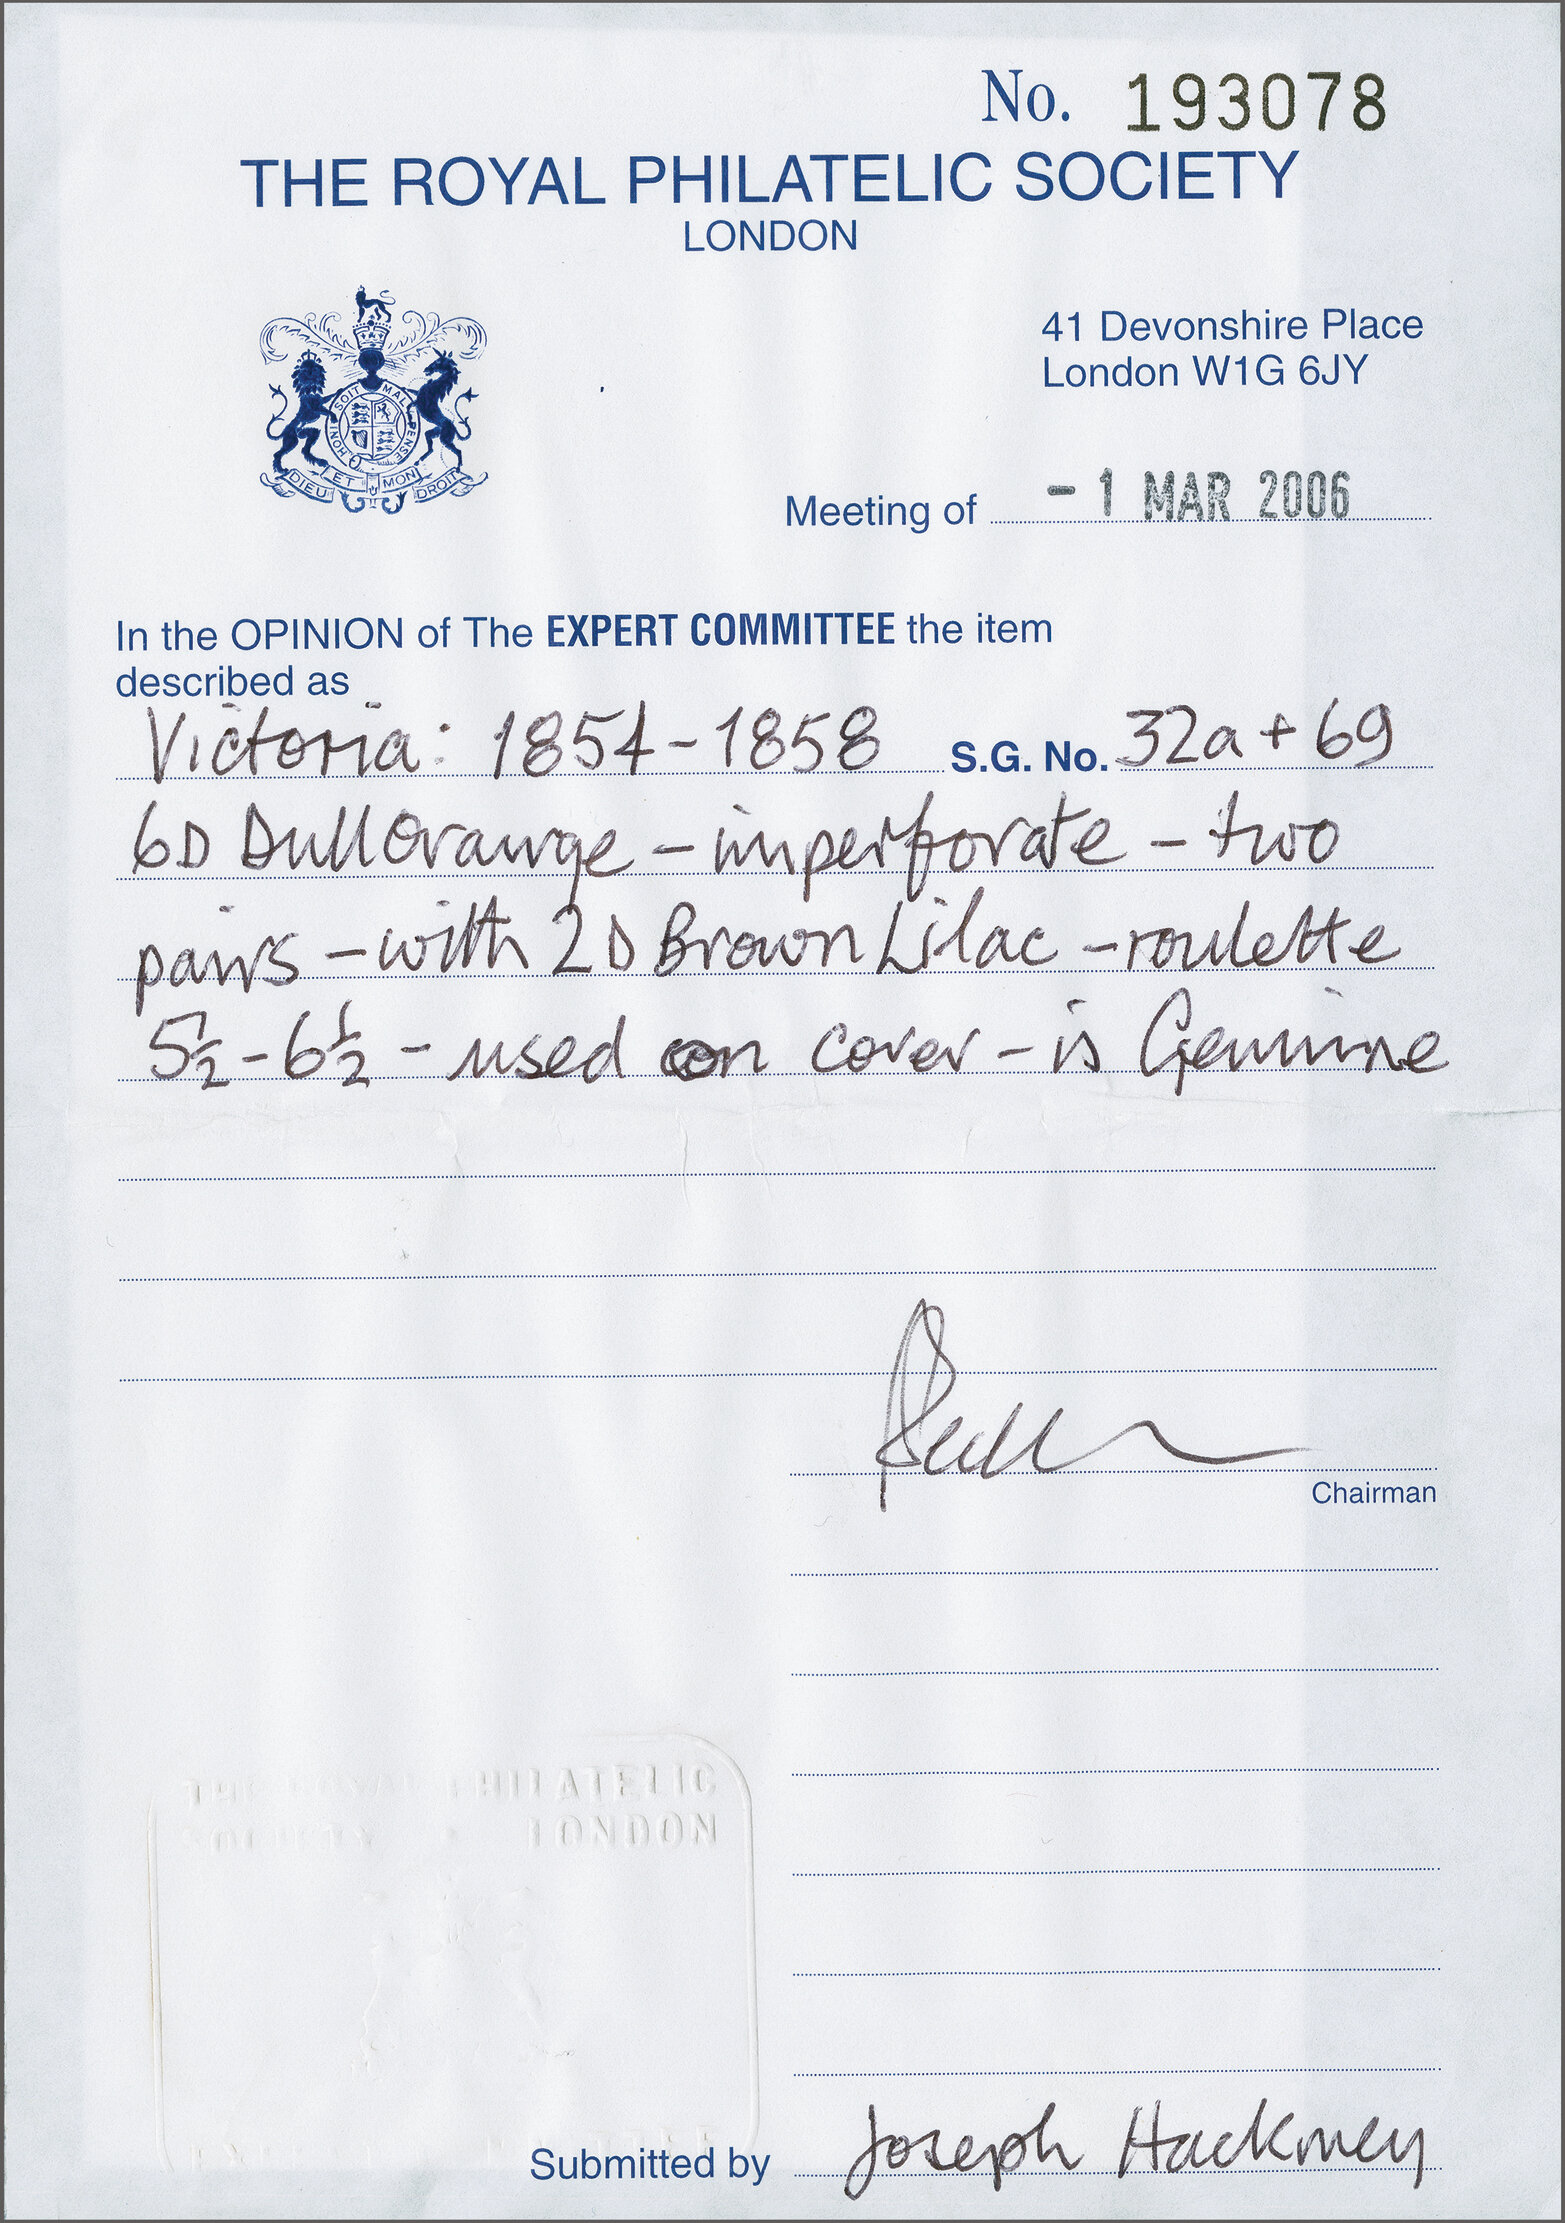 No. 193078
THE ROYAL PHILATELIC SOCIETY
LONDON
HONI SOIT MAL PENSE
DIEU ET MON DROIT
41 Devonshire Place
London W1G 6JY
Meeting of - 1 MAR 2006
In the OPINION of The EXPERT COMMITTEE the item
described as
Victoria: 1854-1858 S.G. No. 32a + 69
6D Dull Orange - imperforate - two
pairs - with 2D Brown Lilac - roulette
5½ - 6½ - used on cover - is Genuine
Chairman
THE ROYAL PHILATELIC
SOCIETY LONDON
Submitted by Joseph Hackmey